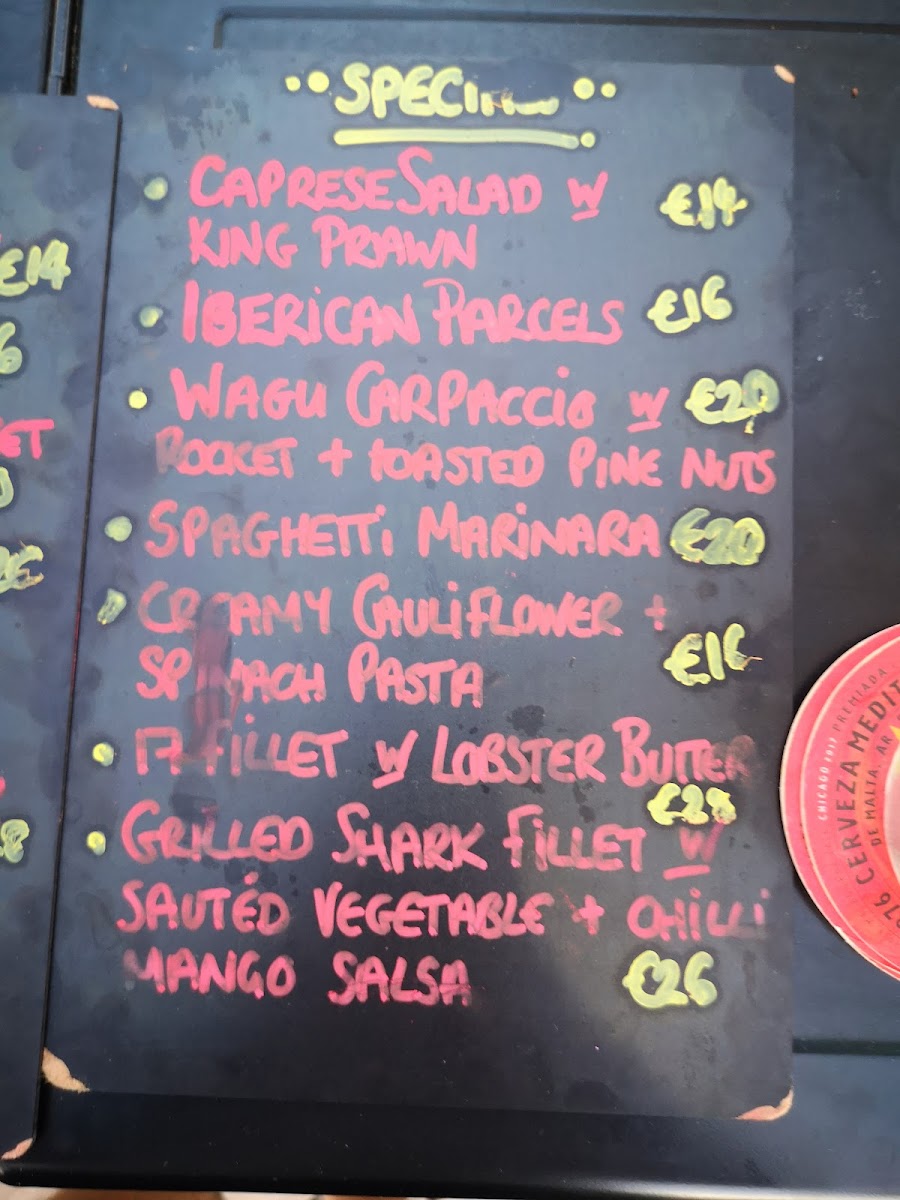 SPECI
CAPRESE SALAD W €14
KING PRAWN
IBERICAN PARCELS €16
WAGU CARPACCIO W €20
ROCKET + TOASTED PINE NUTS
SPAGHETTI MARINARA €20
CREAMY CAULIFLOWER +
SPINACH PASTA €16
FILLET W LOBSTER BUTTER
€28
GRILLED SHARK FILLET W
SAUTÉD VEGETABLE + CHILLI
MANGO SALSA €26
€14
6
ET
8
CHICAGO PREMIADA
CERVEZA MEDIT
DE MALTA, AR